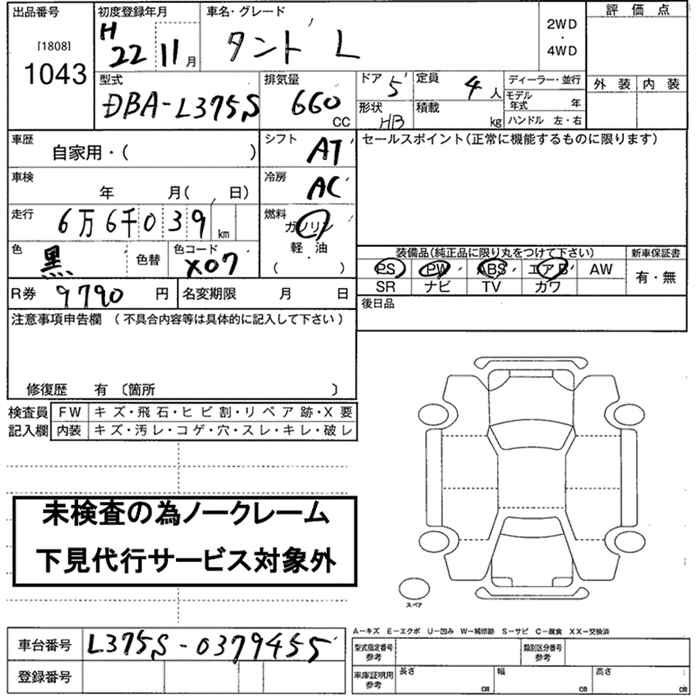 出品番号 初度登録年月 車名・グレード 評価点
[1808] H 22 11月 タント L 2WD ・ 4WD
1043
型式 排気量 ドア 5 定員 4人 ディーラー・並行 外装 内装
DBA-L375S 660 CC 形状 HB 積載 kg モデル年式 年
ハンドル 左・右
車歴 自家用・( ) シフト AT セールスポイント(正常に機能するものに限ります)
車検 年 月( , 日) 冷房 AC
走行 6万6千039km 燃料 ガソリン
色 黒 色替 色コード X07 軽・油 装備品(純正品に限り丸をつけて下さい) 新車保証書
( ) PS PW ABS エアB AW 有・無
R券 9790円 名変期限 月 日 SR ナビ TV カワ
注意事項申告欄 (不具合内容等は具体的に記入して下さい) 後日品
修復歴 有 〔箇所 〕
検査員 FW キズ・飛石・ヒビ割・リペア跡・X要
記入欄 内装 キズ・汚レ・コゲ・穴・スレ・キレ・破レ
未検査の為ノークレーム
下見代行サービス対象外
スペア
A-キズ E-エクボ U-凹み W-補修跡 S-サビ C-腐食 XX-交換済
車台番号 L375S-0379455 型式指定番号 参考 類別区分番号 参考
登録番号 車庫証明用 参考 長さ cm 幅 cm 高さ cm